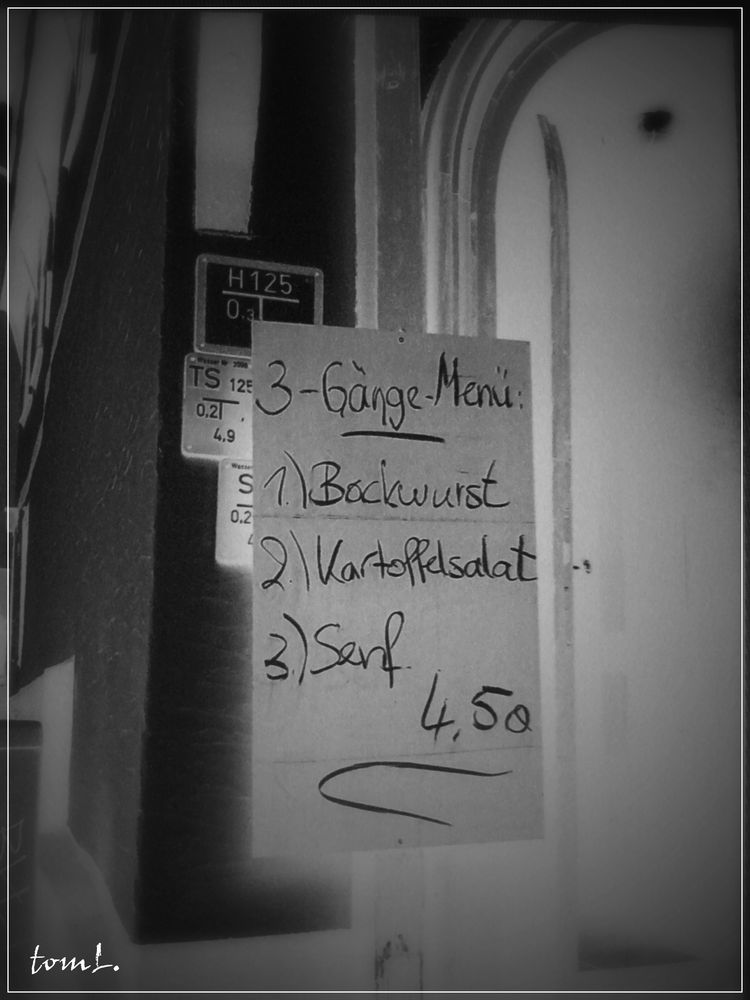 H 125
0.3
Wasser Nr.
TS 125
0.2
4.9
Wasser
S
0.2
3-Gänge-Menü:
1.) Bockwurst
2.) Kartoffelsalat
3.) Senf
4,50
tomL.